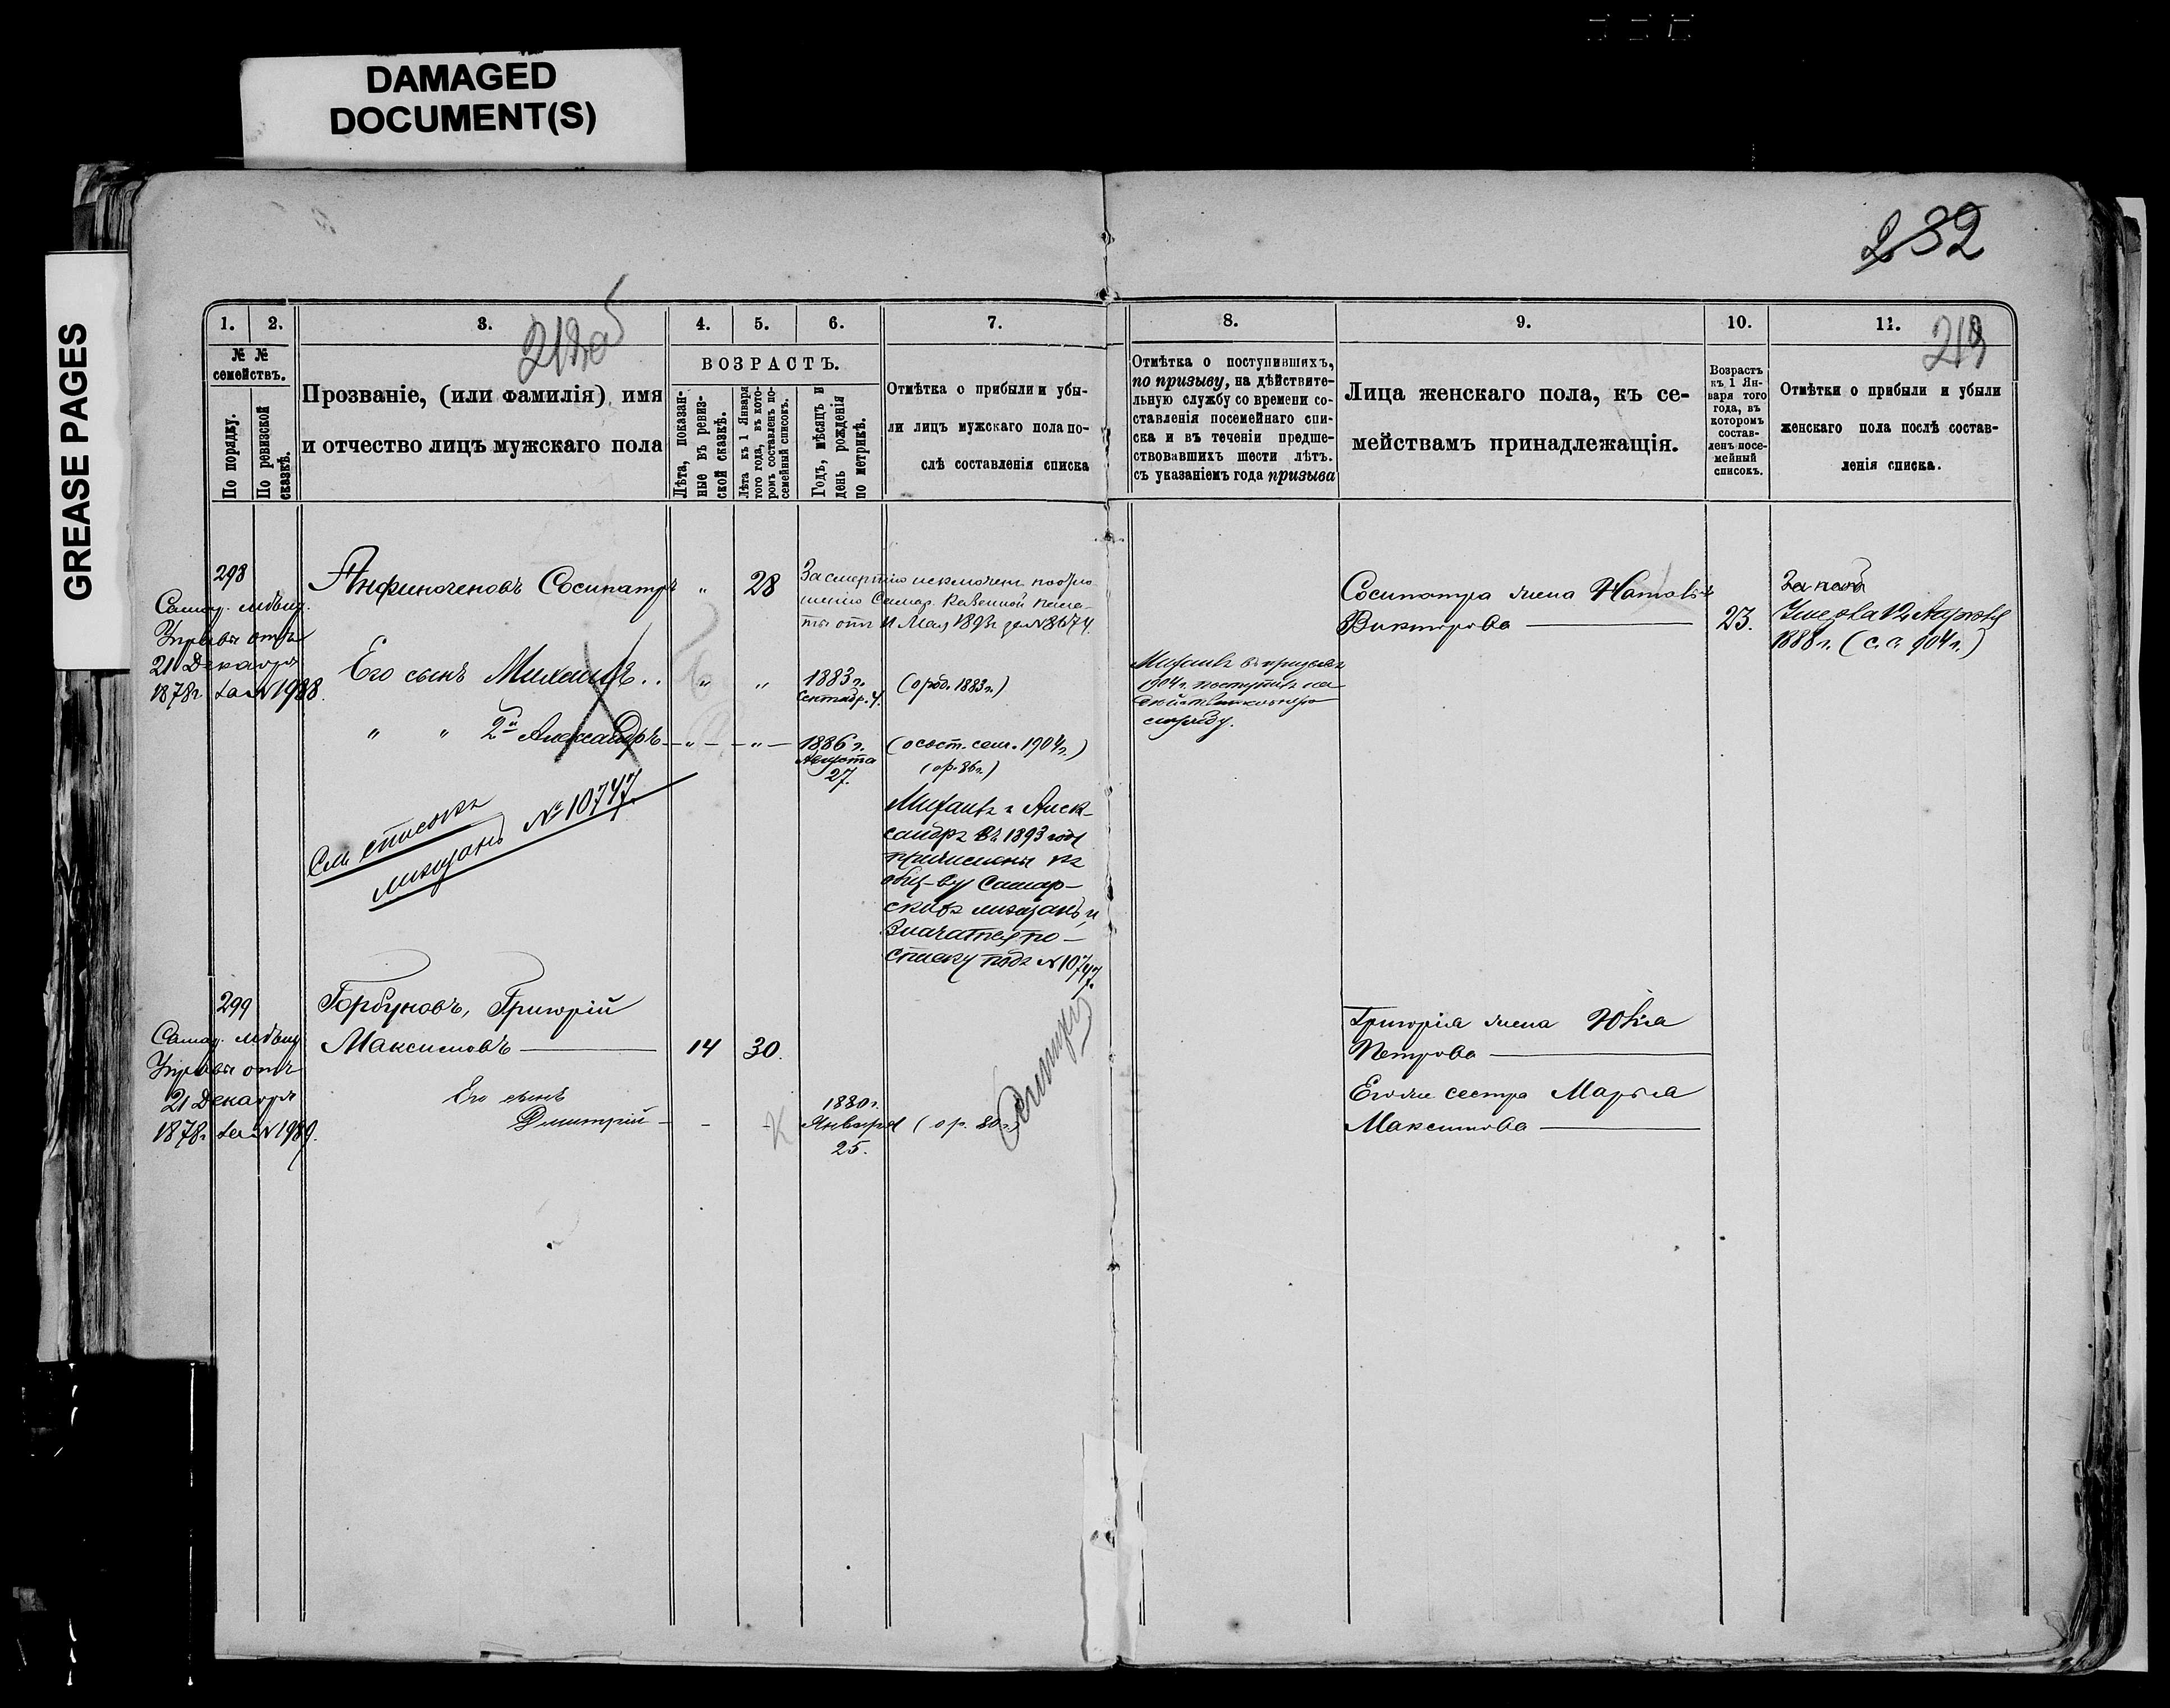 DAMAGED
DOCUMENT(S)
GREASE PAGES
232
1.
2.
3.
4.
5.
6.
7.
8.
9.
10.
11.
212об
213
№ №
семействъ.
По порядку.
По ревизской
сказкѣ.
Прозваніе, (или фамилія) имя
и отчество лицъ мужскаго пола
ВОЗРАСТЪ.
Лѣта, показан-
ные въ ревиз-
ской сказкѣ.
Лѣта къ 1 Января
того года, въ кото-
ромъ составленъ по-
семейный списокъ.
Годъ, мѣсяцъ и
день рожденія
по метрикѣ.
Отмѣтка о прибыли и убы-
ли лицъ мужскаго пола по-
слѣ составленія списка
Отмѣтка о поступившихъ,
по призыву, на дѣйствите-
льную службу со времени со-
ставленія посемейнаго спи-
ска и въ теченіи предше-
ствовавшихъ шести лѣтъ.
съ указаніемъ года призыва
Лица женскаго пола, къ се-
мействамъ принадлежащія.
Возрастъ
къ 1 Ян-
варя того
года, въ
которомъ
состав-
ленъ посе-
мейный
списокъ.
Отмѣтки о прибыли и убыли
женскаго пола послѣ состав-
ленія списка.
298
Самар. мѣщ.
Управы отъ
21 Декабря
1878г. за N 1988.
Анфиногеновъ Сосипатръ " 28
За смертію исключенъ по отно
шенію Самар. Казенной пала-
ты отъ 11 Мая 1893г за N 8674.
Сосипатра жена
Викторова 23.
1888 г. (с. с. 904 г.)
Его сынъ Михаилъ.. " "
1883 г.
Сентябр. 4.
(о род. 1883 г.)
Михаилъ въ призывъ
1904 г. поступилъ на
дѣйствительную
службу.
" " 2й Александръ — " — — " —
1886 г.
Августа
27.
(о сост. сем. 1904 г.)
(о р. 86 г.)
См. списокъ
мѣщанъ № 10747.
Михаилъ и Алек-
сандръ въ 1893 году
причислены къ
общ-ву Самар-
скихъ мѣщанъ, и
значатся по
списку подъ N 10747.
299
Самар. мѣщ.
Управы отъ
21 Декабря
1878г. за N 1989.
Горбуновъ, Григорій
Максимовъ — 14 30.
Григорія жена Юлія
Петрова —
Его сынъ
Дмитрій - - -
1880 г.
Января
25.
(о р. 80 г.)
Дмитрій
Его же сестра Марья
Максимова —